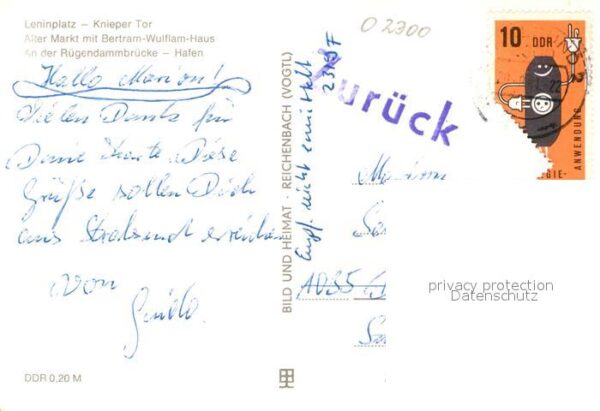 Leninplatz – Knieper Tor
Alter Markt mit Bertram-Wulflam-Haus
An der Rügendammbrücke – Hafen
Hallo Marion!
Vielen Dank für
Deine Karte Diese
Grüße sollen Dich
aus Stralsund erreichen
von
Guido.
DDR 0,20 M
BILD UND HEIMAT · REICHENBACH (VOGTL)
Empf. nicht ermittelt
Zurück
O 2300
10 DDR
GIE-
ANWENDUNG
Marion
1035
privacy protection
Datenschutz